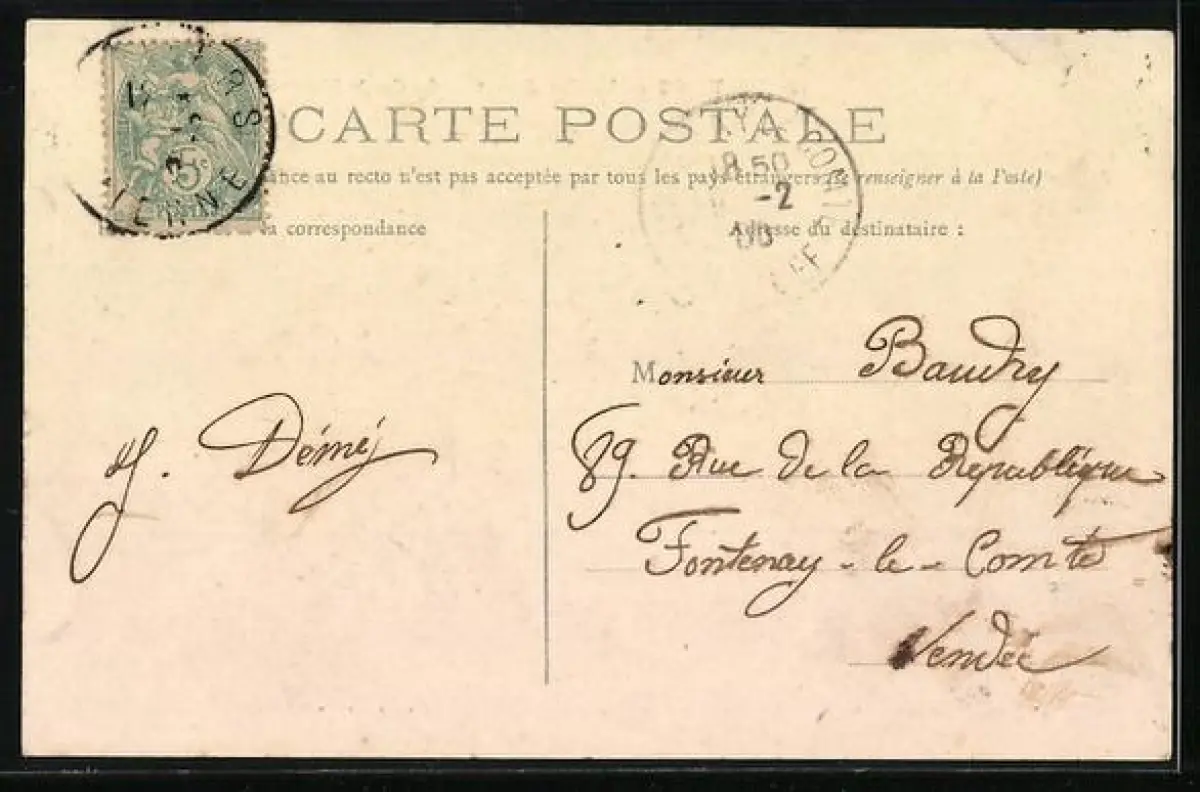 CARTE POSTALE
ance au recto n'est pas acceptée par tous les pays étrangers (se renseigner à la Poste)
la correspondance
Adresse du destinataire :
5c
IENNE
8 50
-2
Monsieur Baudry
89. Rue de la République
Fontenay-le-Comte
Vendée